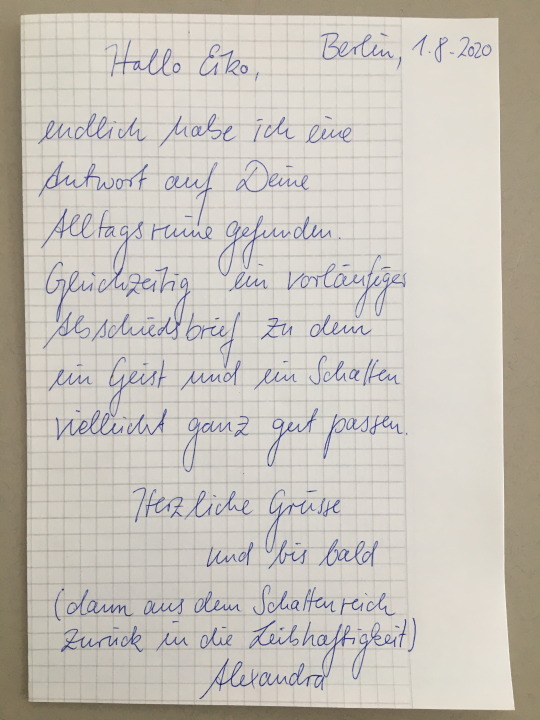 Berlin, 1.8.2020
Hallo Eiko,
endlich habe ich eine
Antwort auf Deine
Alltagsruine gefunden.
Gleichzeitig ein vorläufiger
Abschiedsbrief zu dem
ein Geist und ein Schatten
vielleicht ganz gut passen.
Herzliche Grüsse
und bis bald
(dann aus dem Schattenreich
zurück in die Leibhaftigkeit)
Alexandra